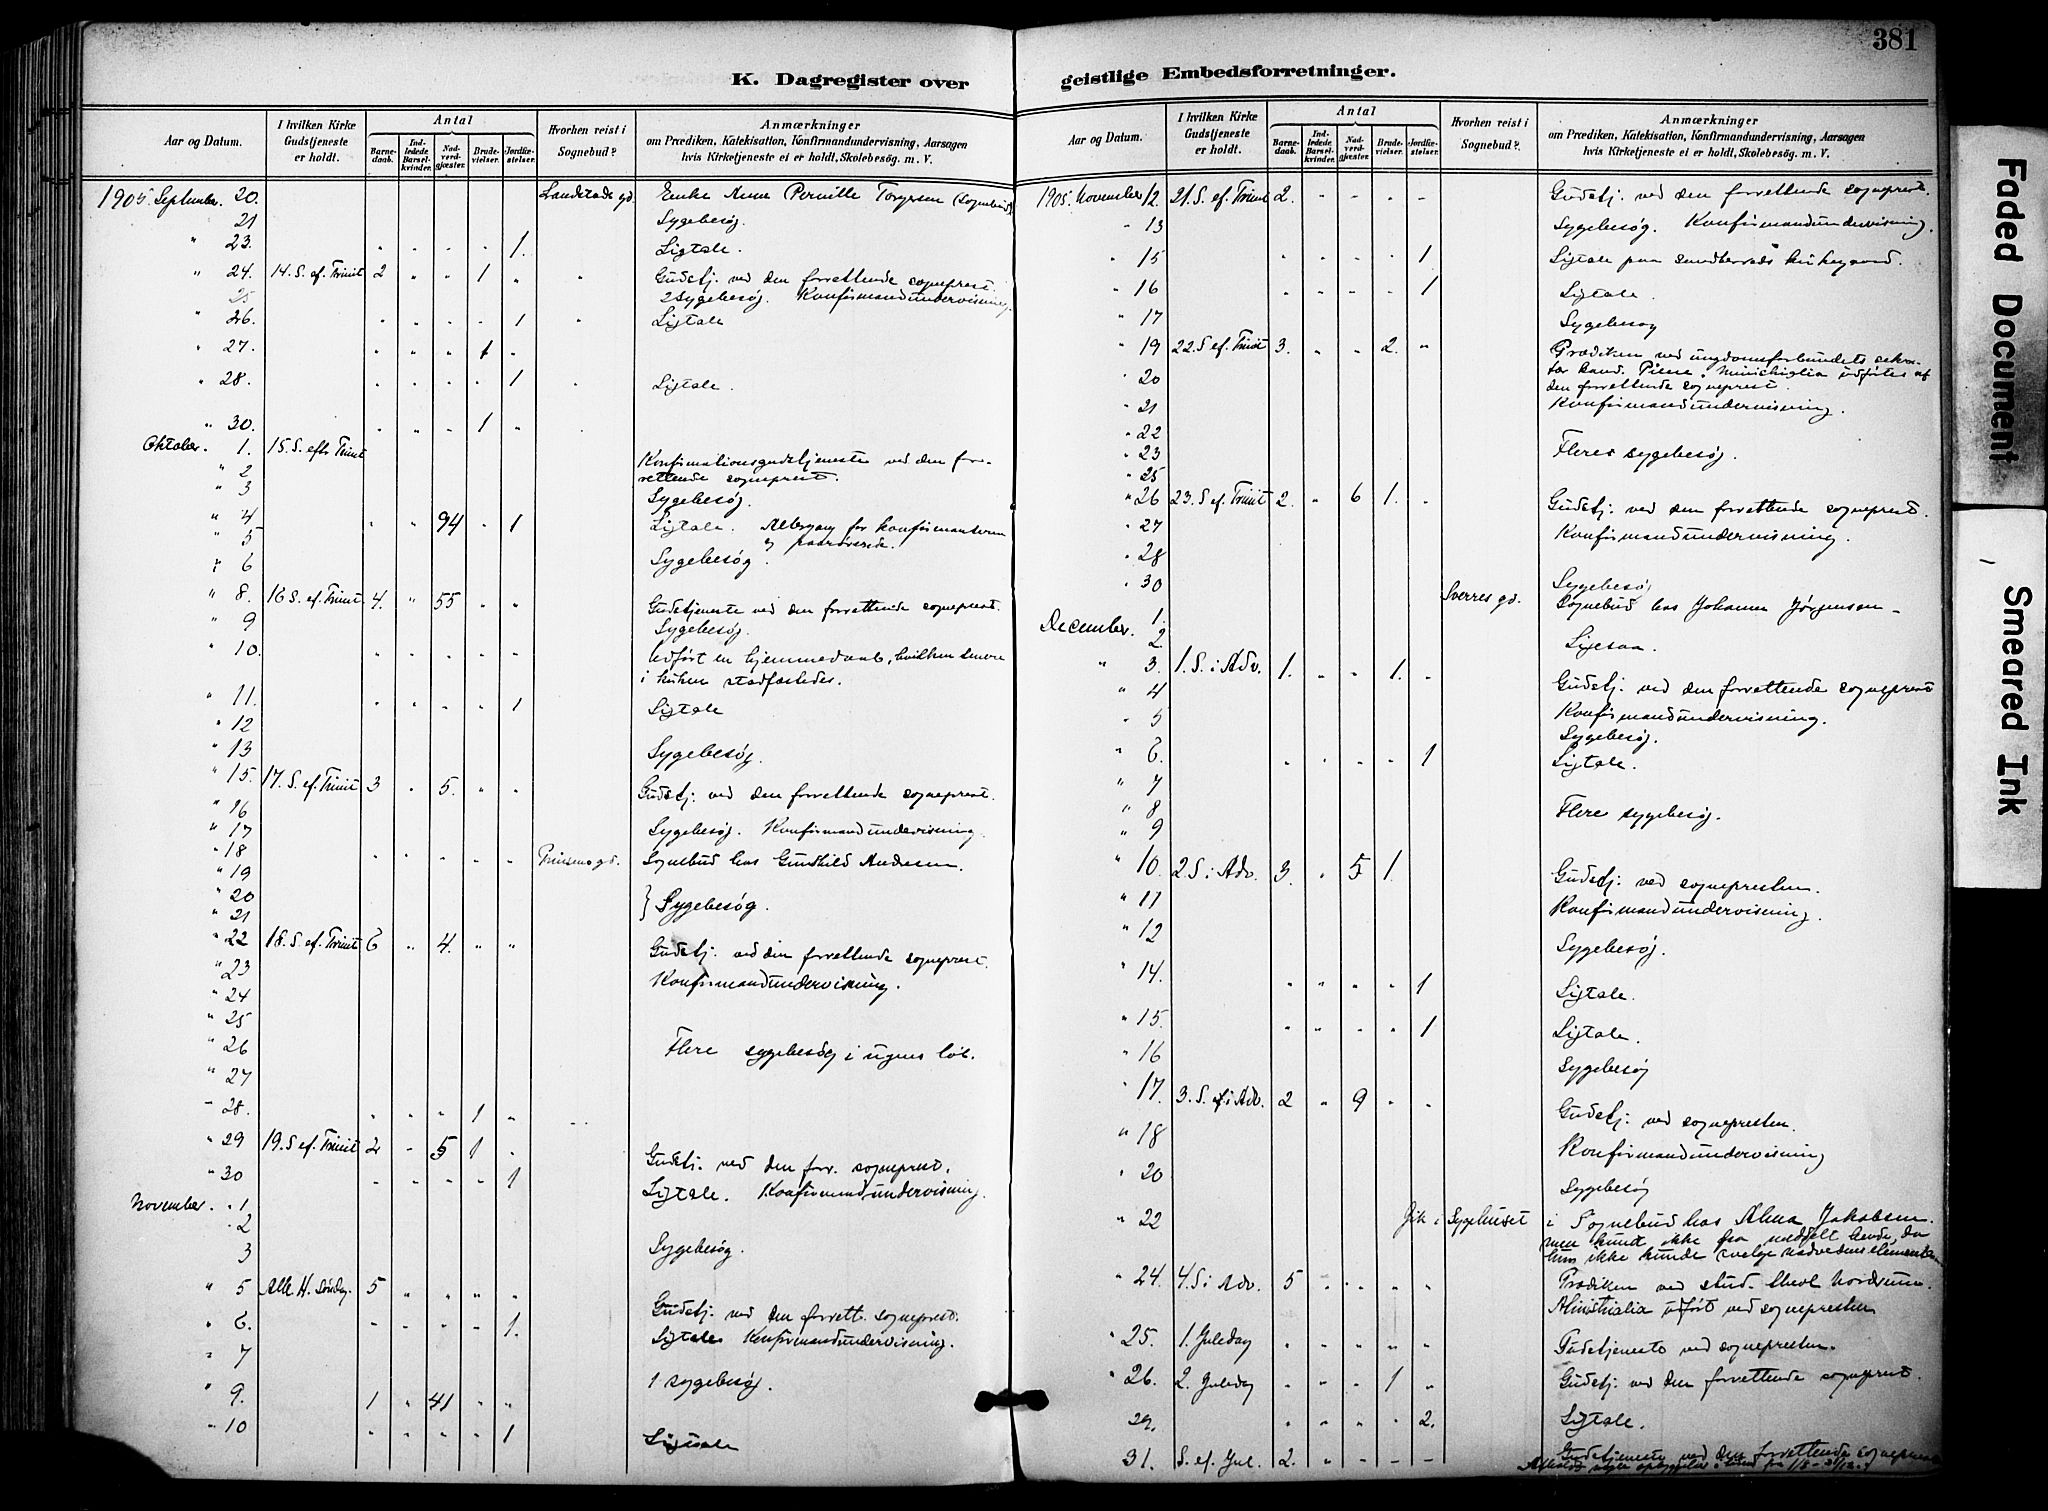 381
K. Dagregister over
geistlige Embedsforretninger.
Aar og Datum.
I hvilken Kirke Gudstjeneste er holdt.
Antal
Barne-daab.
Ind-ledede Barsel-kvinder.
Nad-verd-gjester.
Brude-vielser.
Jordfæ-stelser.
Hvorhen reist i Sognebud?
Anmærkninger
om Prædiken, Katekisation, Konfirmandundervisning, Aarsagen
hvis Kirketjeneste ei er holdt, Skolebesög. m. V.
1905. September. 20. Landstads gd. Enke Anne Pernille Torgersen (Sognebud)
21 Sygebesøg.
" 23. " " " " 1. Ligtale.
" 24. 14. S. ef. Trinit 2 " " 1 " " Gudstj. ved den forrettende sogneprest.
25 2 Sygebesøg. Konfirmandundervisning.
" 26. " " " " 1 " Ligtale
" 27. " " " 1 "
" 28. " " " " 1 " Ligtale.
" 30. " " " 1 " "
Oktober. 1. 15. S. eft. Trinit Konfirmationsgudstjeneste ved den for-
" 2 rettende sogneprest.
" 3 Sygebesøg.
" 4 " " 94 " 1 Ligtale. Altergang for konfirmanterne
" 5 & paarørende.
" 6 Sygebesøg.
" 8. 16 S. ef. Trinit 4. " 55 " " Gudstjeneste ved den forrettende sogneprest.
" 9 Sygebesøg.
" 10. " " " " " Udført en hjemmedaab, hvilken senere
i kirken stadfæstedes.
" 11. " " " " 1 Ligtale
" 12
" 13 Sygebesøg.
" 15. 17. S. ef. Trinit 3 " 5. " " Gudstj. ved den forrettende sogneprest.
" 16
" 17 Sygebesøg. Konfirmandundervisning.
" 18 " " " " " Prinsens gd. Sognebud hos Gunhild Andersen.
" 19
" 20 } Sygebesøg.
" 21
" 22 18. S. ef. Trinit 6 " 4. " " Gudstj. ved den forrettende sogneprest.
" 23 Konfirmandundervisning.
" 24
" 25
" 26 Flere sygebesøg i ugens løb.
" 27
" 28. " " " 1 "
" 29 19. S ef. Trinit 2 " 5 1 " Gudstj. ved den forr. sogneprest.
" 30 " " " " 1 Ligtale. Konfirmandundervisning.
November. " 1
" 2
3 Sygebesøg.
" 5 Alle H. søndag. 5 " " " " Gudstj. ved den forrett. sogneprest.
" 6. " " " " 1. Ligtale Konfirmandundervisning.
" 7
" 9. 1 " 41 " " 1 sygebesøg.
" 10 " " " " 1 Ligtale
Aar og Datum.
I hvilken Kirke Gudstjeneste er holdt.
Antal
Barne-daab.
Ind-ledede Barsel-kvinder.
Nad-verd-gjester.
Brude-vielser.
Jordfæ-stelser.
Hvorhen reist i Sognebud?
Anmærkninger
om Prædiken, Katekisation, Konfirmandundervisning, Aarsagen
hvis Kirketjeneste ei er holdt, Skolebesög. m. V.
1905. November 12. 21. S. ef. Trinit 2. " " " " Gudstj. ved den forrettende sogneprest.
" 13 Sygebesøg. Konfirmandundervisning.
" 15 " " " " 1 Ligtale paa kirkegaard.
" 16 " " " " 1 Ligtale.
" 17 Sygebesøg
" 19 22. S ef. Trinit 3. " " 2. " Prædiken ved ungdomsforbundets sekre-
" 20 tær kand. Ministerialia udførtes af
den forrettende sogneprest.
" 21 Konfirmandundervisning.
" 22
" 23 Flere sygebesøg.
" 25
" 26 23. S ef. Trinit 2. " 6 1. " Gudstj. ved den forrettende sogneprest.
" 27 Konfirmandundervisning.
" 28
" 30 Sygebesøg
Sverres gd. Sognebud hos Johanna Jørgensen
December. 1.
2 Ligesaa.
" 3. 1. S. i Adv. 1. " " 1. " Gudstj. ved den forrettende sogneprest
" 4 Konfirmandundervisning.
" 5 Sygebesøg.
" 6. " " " " 1 Ligtale.
" 7
" 8 Flere sygebesøg.
" 9
" 10. 2 S i Adv. 3. " 5 1. Gudstj. ved sognepresten.
" 11 Konfirmandundervisning.
" 12 Sygebesøg.
" 14. " " " " 1 Ligtale.
" 15. " " " " 1 Ligtale.
" 16 Sygebesøg
" 17. 3. S. i Adv. 2 " 9 " " Gudstj. ved sognepresten.
" 18 Konfirmandundervisning
" 20 Sygebesøg
" 22 Gik i Sygehuset i Sognebud hos Alma Jakobsen.
men kunde ikke faa meddelt hende, da
hun ikke kunde svelge nadverdens elementer.
" 24. 4. S i Adv. 5 " " " " Prædiken ved stud. theol. Nordrum.
Ministerialia udført ved sognepresten
" 25. 1. Juledag " " " " " Gudstjeneste ved sognepresten.
" 26. 2. Juledag " " " 1 " Gudstj. ved den forrettende sogneprest.
29. " " " " 2. Ligtale.
31. S. ef. Jul. 2. " " " " Gudstjeneste ved den forrettende sogneprest
Faded Document
Smeared Ink